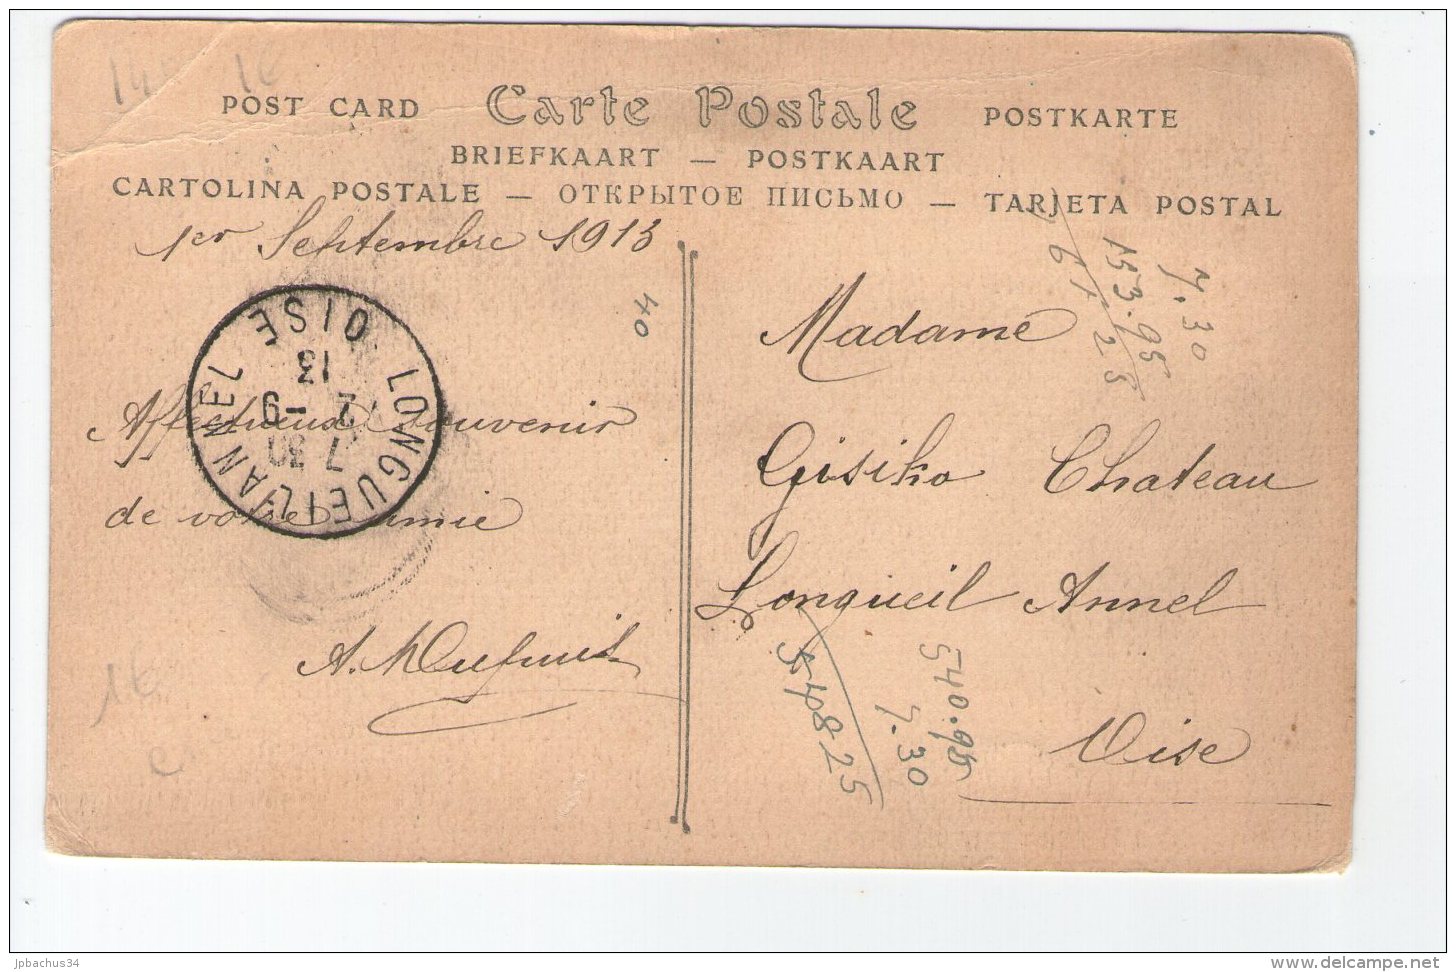 POST CARD Carte Postale POSTKARTE
BRIEFKAART — POSTKAART
CARTOLINA POSTALE — ОТКРЫТОЕ ПИСЬМО — TARJETA POSTAL
1er Septembre 1913
Affectueux Souvenir
de votre amie
LONGUEIL-ANNEL OISE
7 30
2 -9
13
40
Madame
Gisiko Chateau
Longueil Annel
Oise
7.30
153.95
61 25
540.95
7.30
548 25
16
jpbachus34
© delcampe.net